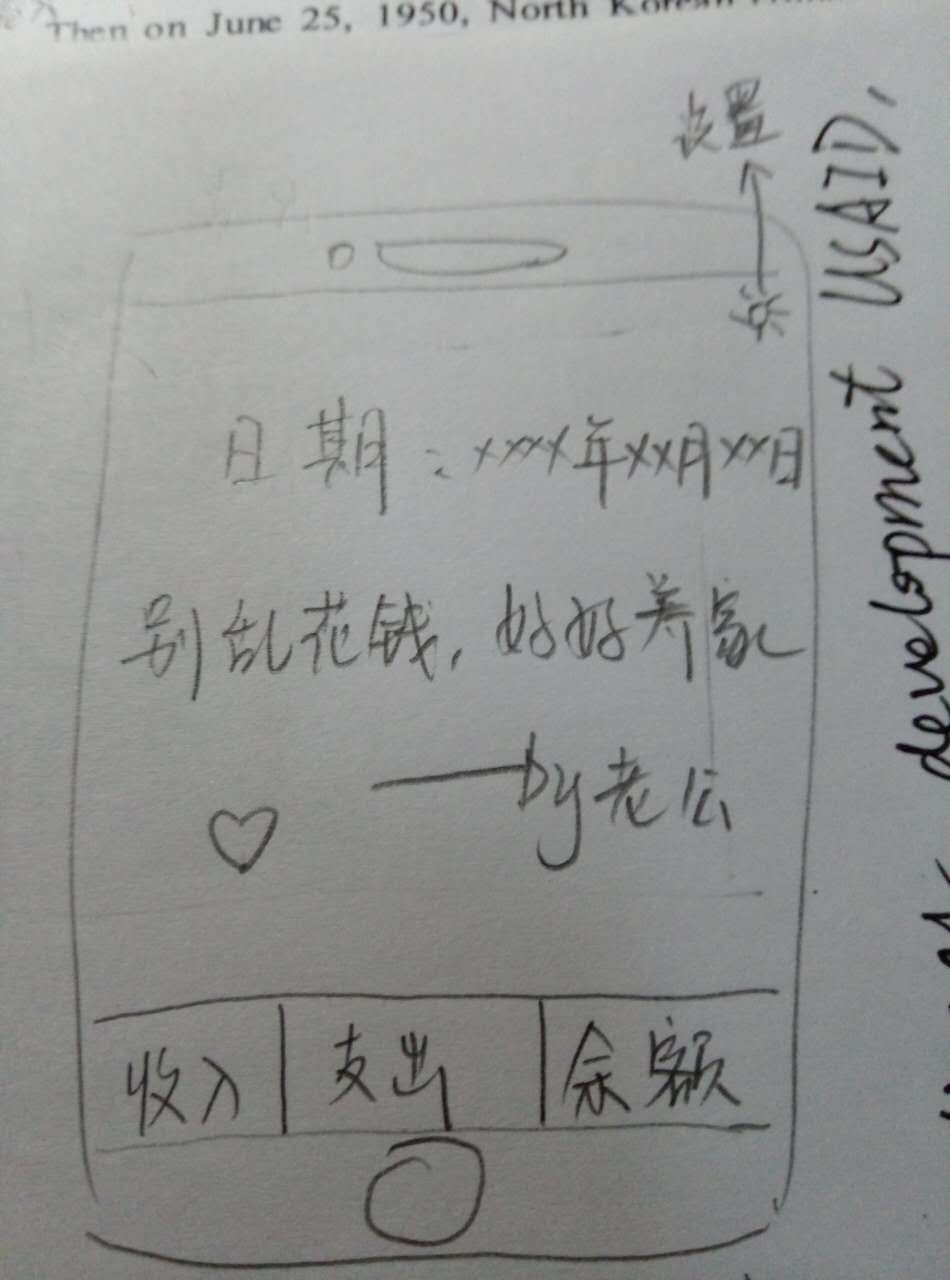 Then on June 25, 1950, North Korean
设置
日期：xxxx年xx月xx日
别乱花钱，好好养家
——by老公
收入 支出 余额
development